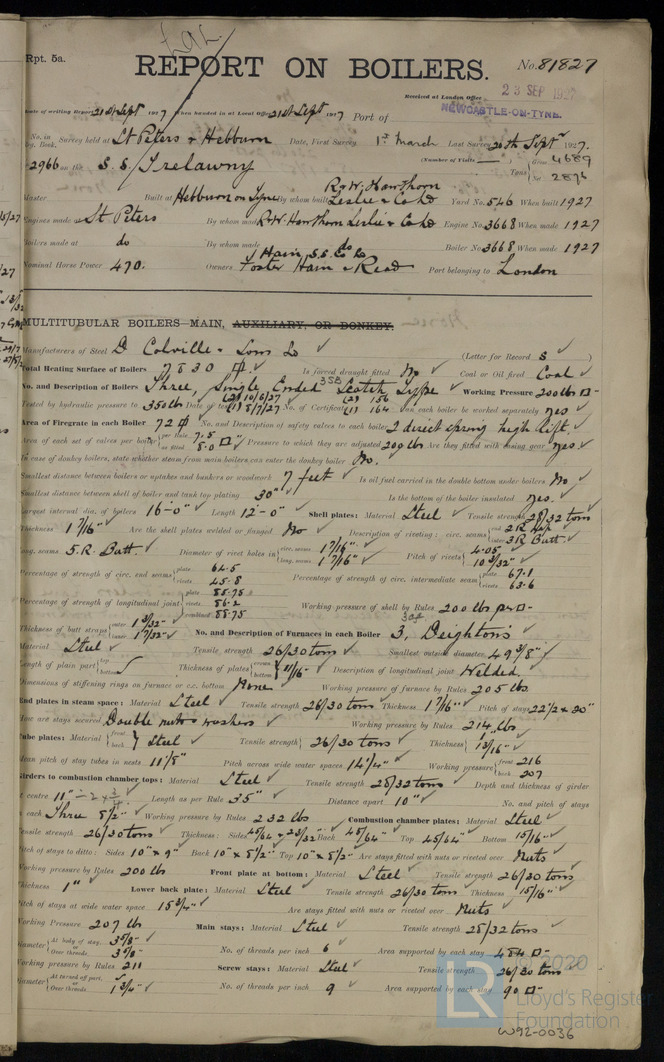 Rpt. 5a.
REPORT ON BOILERS.
No. 81827
Received at London Office 23 SEP 1927
NEWCASTLE-ON-TYNE.
Date of writing Report 21st Sept 1927 When handed in at Local Office 21st Sept 1927 Port of
No. in Reg. Book. Survey held at St Peters & Hebburn Date, First Survey 1st March Last Survey 20th Septr 1927.
2966 on the S.S. Trelawny (Number of Visits —) Gross 4689 Tons Net 2876
Master Built at Hebburn on Tyne By whom built R & W. Hawthorn Leslie & Co Ld Yard No. 546 When built 1927
Engines made at St Peters By whom made R & W. Hawthorn Leslie & Co Ld Engine No. 3668 When made 1927
Boilers made at do By whom made do Boiler No. 3668 When made 1927
Nominal Horse Power 470. Owners Hain S.S. Co Ld Foster Hain & Read Port belonging to London
MULTITUBULAR BOILERS—MAIN, AUXILIARY, OR DONKEY.
Manufacturers of Steel D. Colville & Sons Ld (Letter for Record S)
Total Heating Surface of Boilers 7830 Is forced draught fitted No Coal or Oil fired Coal
No. and Description of Boilers Three, Single Ended Scotch Type Working Pressure 200 lb
Tested by hydraulic pressure to 350 lb Date of test (2) 10/6/27 (1) 8/7/27 No. of Certificate (2) 156 (1) 164 Can each boiler be worked separately yes
Area of Firegrate in each Boiler 72 No. and Description of safety valves to each boiler 2 direct spring high lift.
Area of each set of valves per boiler per Rule 7.5 as fitted 8.0 Pressure to which they are adjusted 200 lb Are they fitted with easing gear yes
In case of donkey boilers, state whether steam from main boilers can enter the donkey boiler No.
Smallest distance between boilers or uptakes and bunkers or woodwork 7 feet Is oil fuel carried in the double bottom under boilers No
Smallest distance between shell of boiler and tank top plating 30" Is the bottom of the boiler insulated yes.
Largest internal dia. of boilers 16'-0" Length 12'-0" Shell plates: Material Steel Tensile strength 28/32 tons
Thickness 1 7/16" Are the shell plates welded or flanged No Description of riveting: circ. seams end 2R Lap inter 3R Butt.
Long. seams 5.R. Butt. Diameter of rivet holes in circ. seams 1 7/16" long. seams 1 7/16" Pitch of rivets 4.05" 10 3/32"
Percentage of strength of circ. end seams plate 64.5 rivets 45.8 Percentage of strength of circ. intermediate seam plate 67.1 rivets 63.6
Percentage of strength of longitudinal joint plate 85.75 rivets 86.2 combined 88.75 Working pressure of shell by Rules 200 lbs per
Thickness of butt straps outer 1 3/32" inner 1 7/32" No. and Description of Furnaces in each Boiler 3, Deighton's
Material Steel Tensile strength 26/30 tons Smallest outside diameter 49 3/8"
Length of plain part top bottom Thickness of plates crown bottom 11/16" Description of longitudinal joint Welded.
Dimensions of stiffening rings on furnace or c.c. bottom None Working pressure of furnace by Rules 205 lbs
End plates in steam space: Material Steel Tensile strength 26/30 tons Thickness 1 7/16" Pitch of stays 22 1/2 x 20"
How are stays secured Double nuts & washers Working pressure by Rules 214 lbs
Tube plates: Material front back Steel Tensile strength 26/30 tons Thickness 1" 13/16"
Mean pitch of stay tubes in nests 11 1/8" Pitch across wide water spaces 14 1/4" Working pressure front 216 back 207
Girders to combustion chamber tops: Material Steel Tensile strength 28/32 tons Depth and thickness of girder
at centre 11" Length as per Rule 35" Distance apart 10" No. and pitch of stays
in each Three 8 1/2" Working pressure by Rules 232 lbs Combustion chamber plates: Material Steel
Tensile strength 26/30 tons Thickness: Sides 45/64 & 23/32" Back 45/64" Top 45/64" Bottom 15/16"
Pitch of stays to ditto: Sides 10" x 9" Back 10" x 8 1/2" Top 10" x 8 1/2" Are stays fitted with nuts or riveted over Nuts
Working pressure by Rules 200 lbs Front plate at bottom: Material Steel Tensile strength 26/30 tons
Thickness 1" Lower back plate: Material Steel Tensile strength 26/30 tons Thickness 15/16"
Pitch of stays at wide water space 15 3/4" Are stays fitted with nuts or riveted over Nuts
Working Pressure 207 lbs Main stays: Material Steel Tensile strength 28/32 tons
Diameter At body of stay, 3 5/8" Over threads 3 7/8" No. of threads per inch 6 Area supported by each stay 484
Working pressure by Rules 211 Screw stays: Material Steel Tensile strength 26/30 tons
Diameter At turned off part, Over threads 1 3/4" No. of threads per inch 9 Area supported by each stay 90
© 2020
LR Lloyd's Register
Foundation
W92-0036